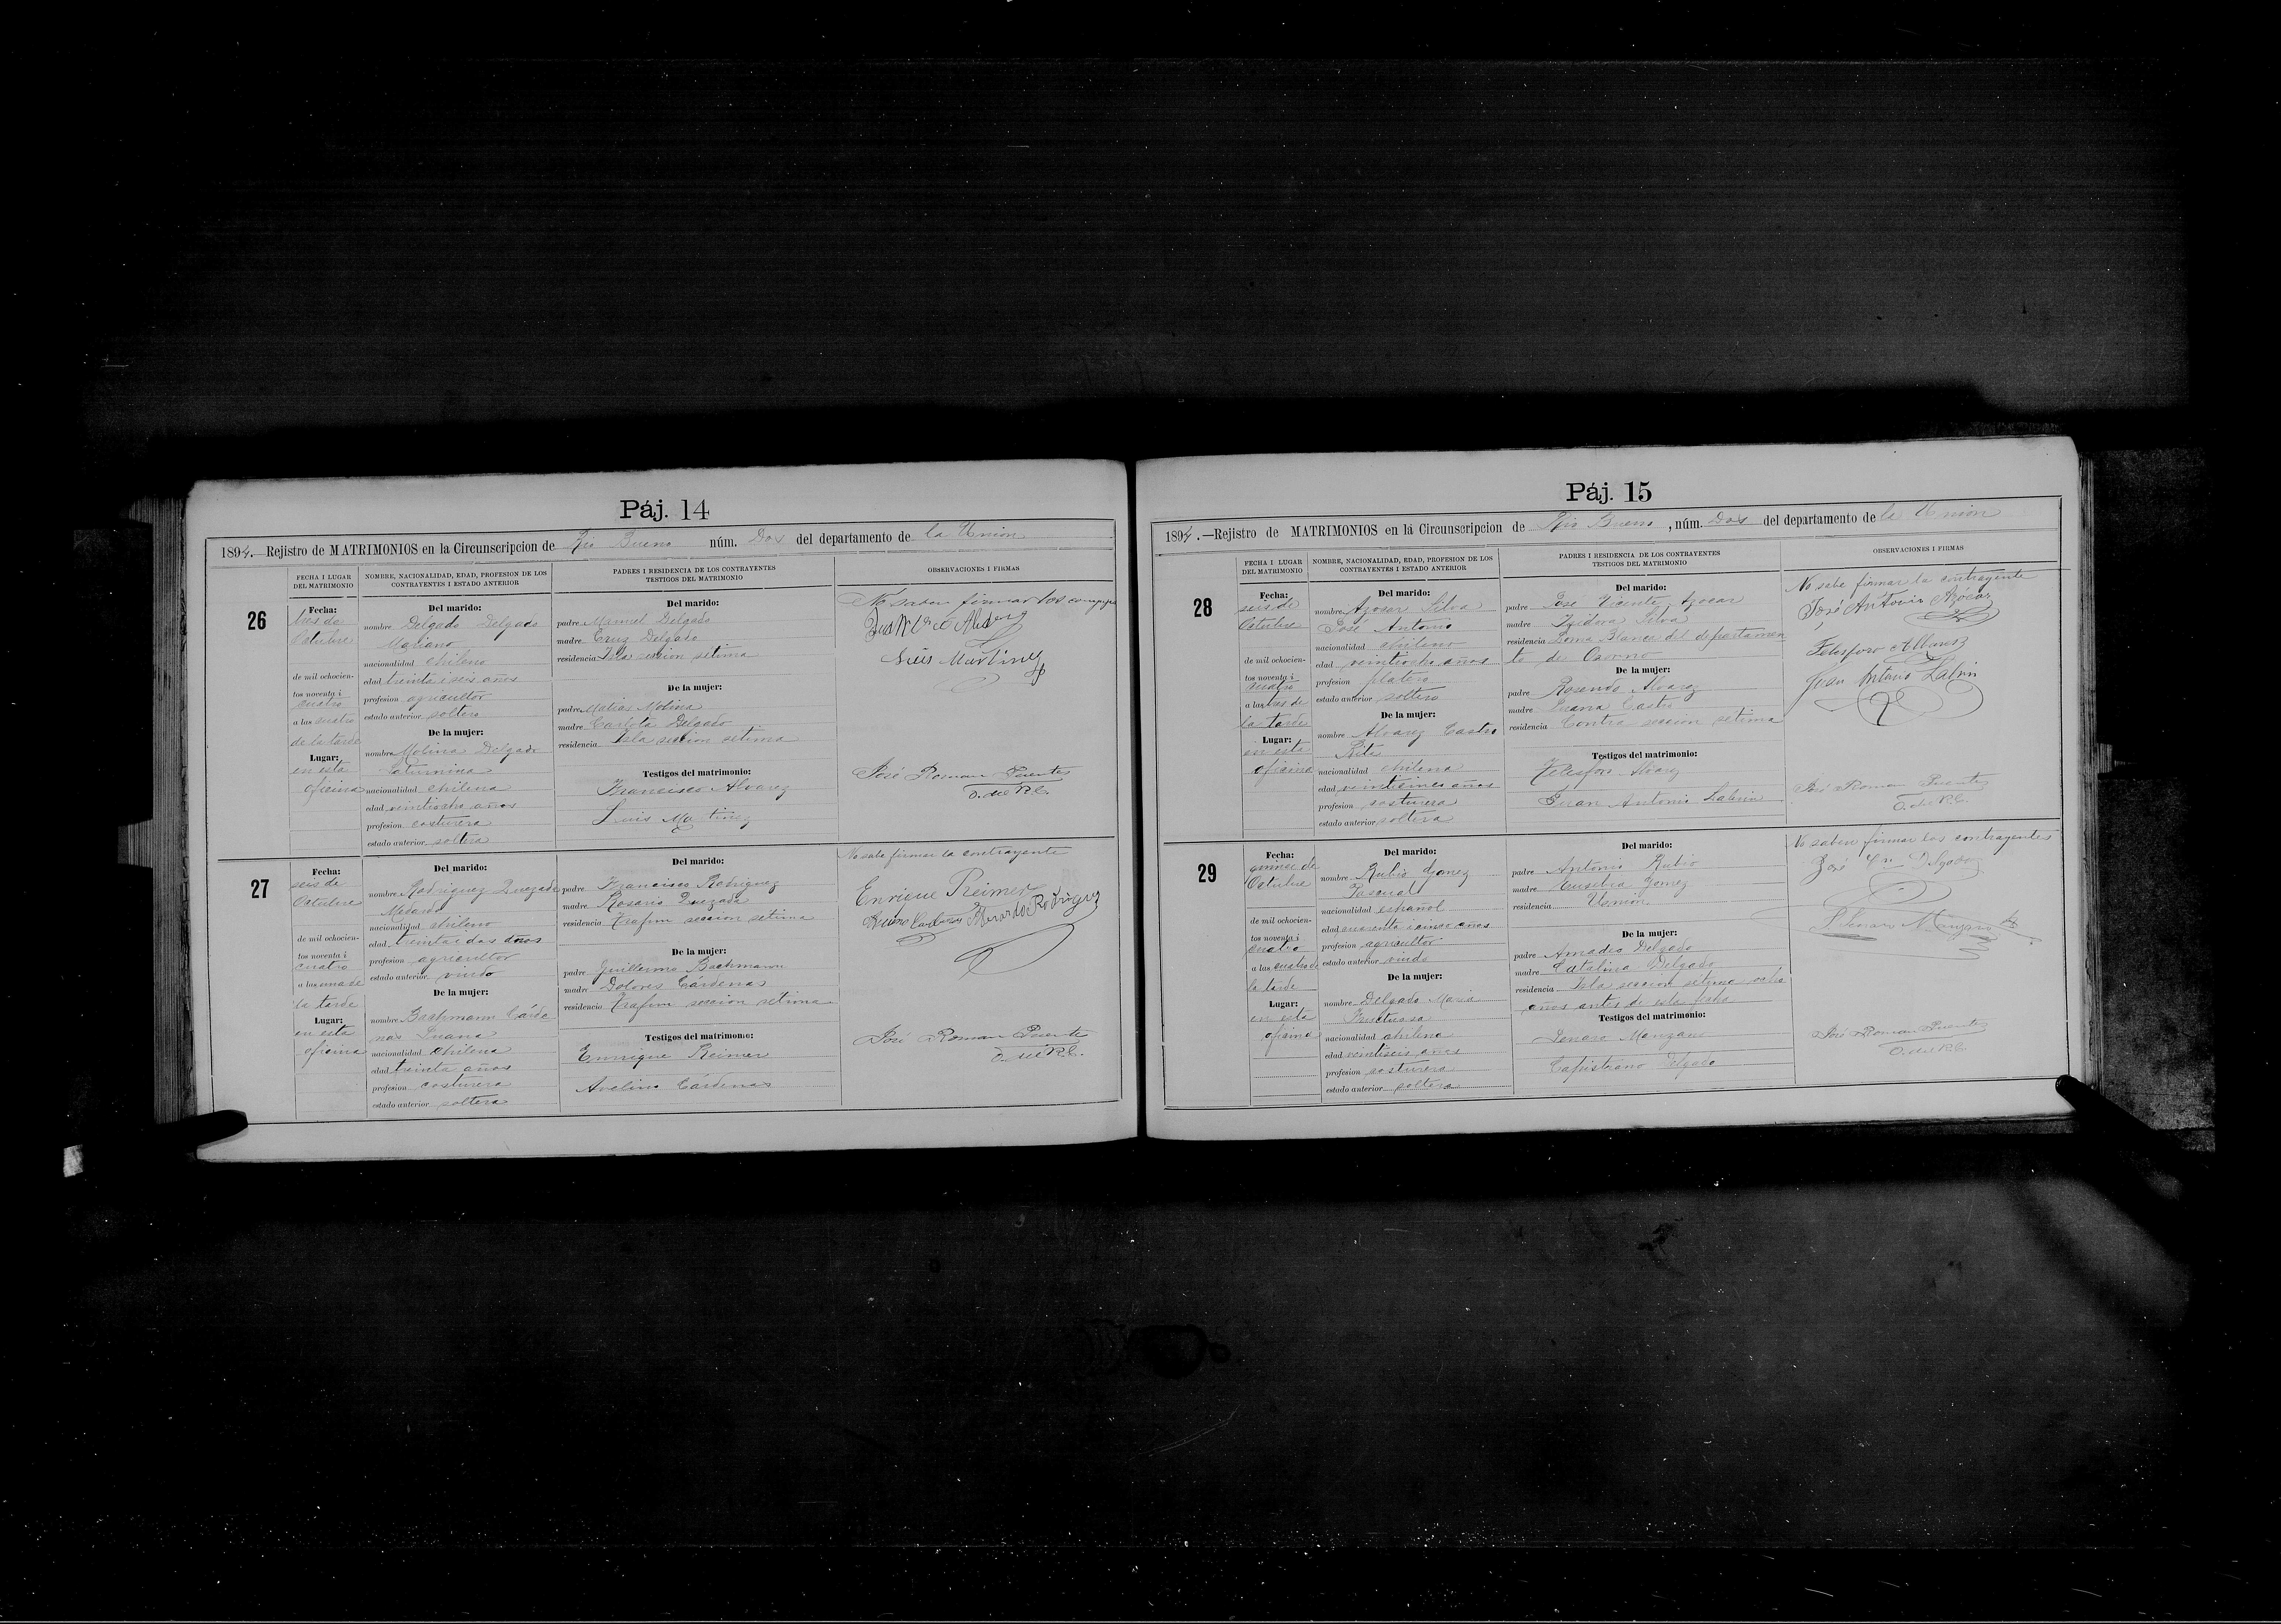 Páj. 14
1894.—Rejistro de MATRIMONIOS en la Circunscripcion de Rio Bueno núm. Dos del departamento de la Union
FECHA I LUGAR DEL MATRIMONIO
NOMBRE, NACIONALIDAD, EDAD, PROFESION DE LOS CONTRAYENTES I ESTADO ANTERIOR
PADRES I RESIDENCIA DE LOS CONTRAYENTES TESTIGOS DEL MATRIMONIO
OBSERVACIONES I FIRMAS
26
Fecha:
tres de
Octubre
de mil ochocien-
tos noventa i
cuatro
a las cuatro
de la tarde
Lugar:
en esta
oficina
Del marido:
nombre Delgado Delgado
nacionalidad chileno
edad treinta i seis años
profesion agricultor
estado anterior soltero
De la mujer:
nombre Molina Delgado
Saturnina
nacionalidad chilena
edad veintiocho años
profesion costurera
estado anterior soltera
Del marido:
padre Manuel Delgado
madre Cruz Delgado
residencia Isla seccion sétima
De la mujer:
padre Matias Molina
madre Carlota Delgado
residencia Isla seccion sétima
Testigos del matrimonio:
Francisco Alvarez
Luis Martinez
No saben firmar los
Luis Martinez
José Roman Puentes
O. del R.C.
27
Fecha:
seis de
Octubre
de mil ochocien-
tos noventa i
cuatro
a las una de
la tarde
Lugar:
en esta
oficina
Del marido:
nombre Rodriguez Quezada
Medardo
nacionalidad chileno
edad treintaidos años
profesion agricultor
estado anterior viudo
De la mujer:
nombre Bachmann Cárde
nas Juana
nacionalidad chilena
edad treinta años
profesion costurera
estado anterior soltera
Del marido:
padre Francisco Rodriguez
madre Rosario Quezada
residencia Trafun seccion sétima
De la mujer:
padre Guillermo Bachmann
madre Dolores Cárdenas
residencia Trafun seccion sétima
Testigos del matrimonio:
Enrique Reimer
Avelino Cárdenas
No sabe firmar la contrayente
Enrique Reimer
José Roman Puentes
O. del R.C.
Páj. 15
1894.—Rejistro de MATRIMONIOS en la Circunscripcion de Rio Bueno, núm. Dos del departamento de la Union
FECHA I LUGAR DEL MATRIMONIO
NOMBRE, NACIONALIDAD, EDAD, PROFESION DE LOS CONTRAYENTES I ESTADO ANTERIOR
PADRES I RESIDENCIA DE LOS CONTRAYENTES TESTIGOS DEL MATRIMONIO
OBSERVACIONES I FIRMAS
28
Fecha:
seis de
Octubre
de mil ochocien-
tos noventa i
cuatro
a las tres de
la tarde
Lugar:
en esta
oficina
Del marido:
nombre Azocar Silva
José Antonio
nacionalidad chileno
edad veintiocho años
profesion platero
estado anterior soltero
De la mujer:
nombre Alvarez Castro
Rita
nacionalidad chilena
edad veinticinco años
profesion costurera
estado anterior soltera
Del marido:
padre José Vicente Azocar
madre Isidora Silva
residencia Loma Blanca del departamen
to de Osorno
De la mujer:
padre Rosendo Alvarez
madre Juana Castro
residencia Contra seccion sétima
Testigos del matrimonio:
Telesforo Alvarez
Juan Antonio Labrin
No sabe firmar la contrayente
José Antonio Azocar
Telesforo Albarez
Juan Antonio Labrin
José Roman Puentes
O. del R.C.
29
Fecha:
quince de
Octubre
de mil ochocien-
tos noventa i
cuatro
a las cuatro de
la tarde
Lugar:
en esta
oficina
Del marido:
nombre Rubio Gomez
Pascual
nacionalidad español
edad cuarenta i cinco años
profesion agricultor
estado anterior viudo
De la mujer:
nombre Delgado Maria
Fructuosa
nacionalidad chilena
edad veintiseis años
profesion costurera
estado anterior soltera
Del marido:
padre Antonio Rubio
madre Eusebia Gomez
residencia Union
De la mujer:
padre Amador Delgado
madre Catalina Delgado
residencia Isla seccion sétima ocho
años antes de esta fecha
Testigos del matrimonio:
Jenaro Manzano
Capistrano Delgado
No saben firmar los contrayentes
José Roman Puentes
O. del R.C.